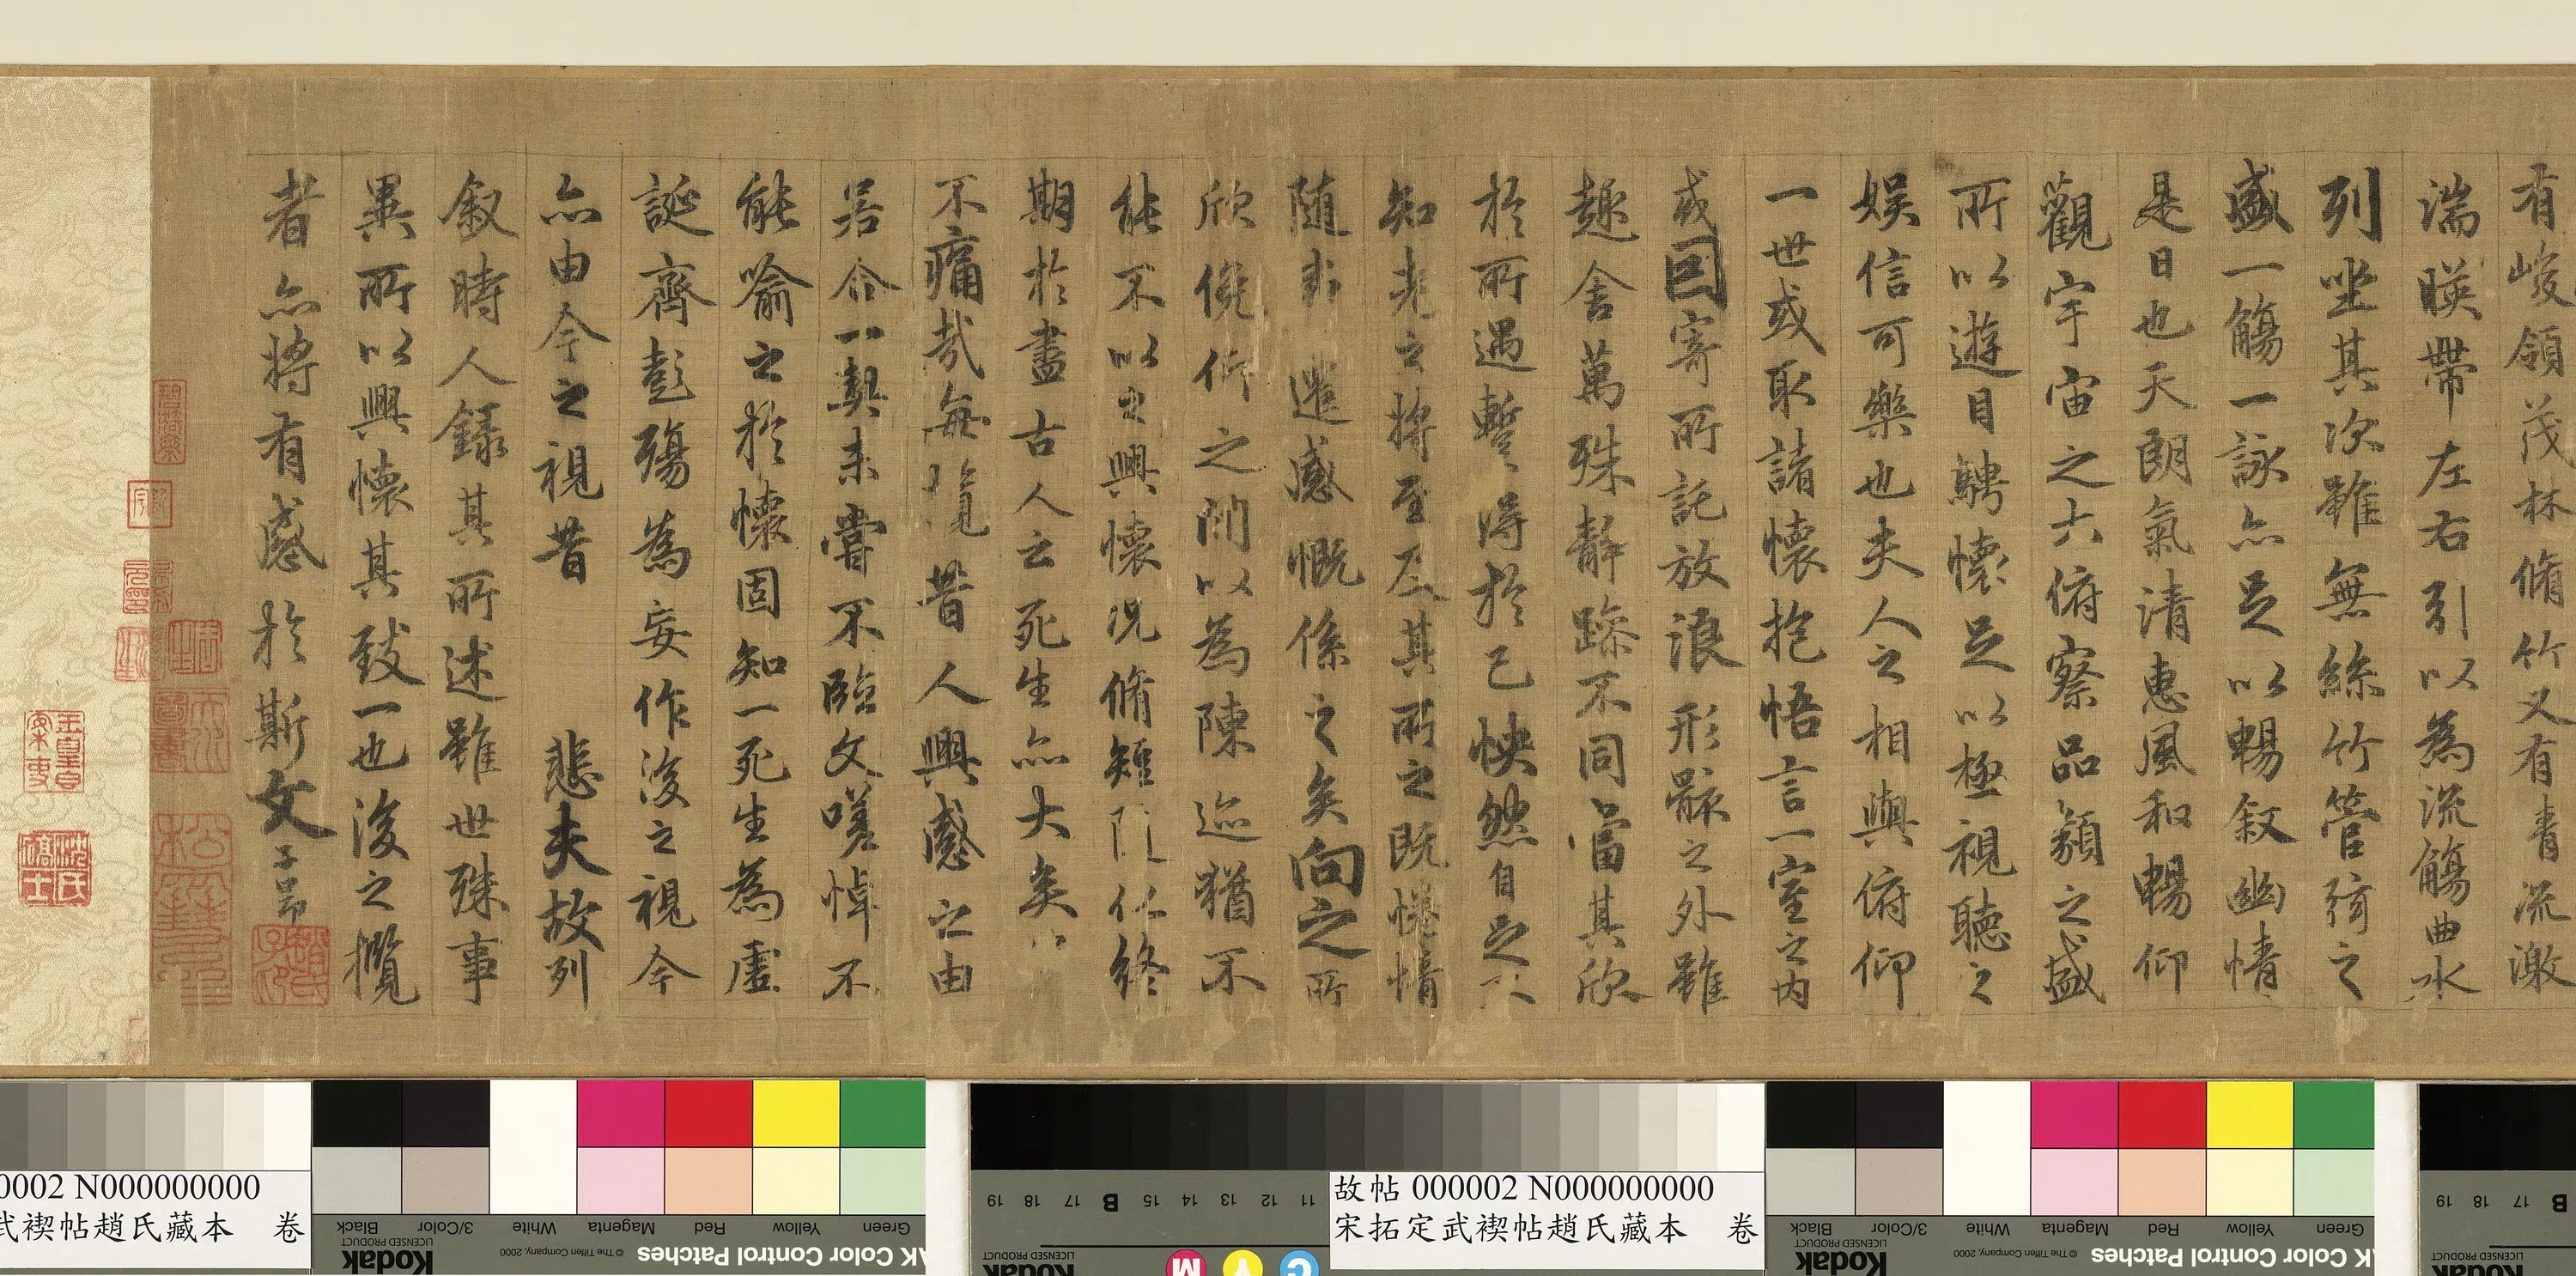 有峻領茂林脩竹又有青流激
湍暎帶左右引以為流觴曲水
列坐其次雖無絲竹管弦之
盛一觴一詠亦足以暢敘幽情
是日也天朗氣清惠風和暢仰
觀宇宙之大俯察品類之盛
所以遊目騁懷足以極視聽之
娛信可樂也夫人之相與俯仰
一世或取諸懷抱悟言一室之內
或因寄所託放浪形骸之外雖
趣舍萬殊靜躁不同當其欣
於所遇蹔得於己怏然自足不
知老之將至及其所之既惓情
隨事遷感慨係之矣向之所
欣俛仰之間以為陳迹猶不
能不以之興懷況脩短隨化終
期於盡古人云死生亦大矣
不痛哉每攬昔人興感之由
若合一契未嘗不臨文嗟悼不
能喻之於懷固知一死生為虛
誕齊彭殤為妄作後之視今
亦由今之視昔 悲夫故列
敘時人錄其所述雖世殊事
異所以興懷其致一也後之攬
者亦將有感於斯文
子昂
趙氏子昂
0002 N000000000
武禊帖趙氏藏本 卷
故帖 000002 N000000000
宋拓定武禊帖趙氏藏本 卷
Black
3/Color
White
Magenta
Red
Yellow
Green
Kodak
LICENSED PRODUCT
© The Tiffen Company, 2000
AK Color Control Patches
19 18 17 B 15 14 13 12 11
Kodak
LICENSED PRODUCT
M Y C
Black
3/Color
White
Magenta
Red
Yellow
Green
Kodak
LICENSED PRODUCT
© The Tiffen Company, 2000
AK Color Control Patches
19 18 17 B
Kodak
LICENSED PRODUCT